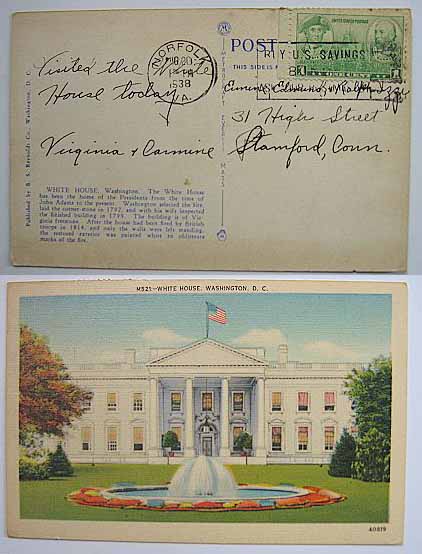 NORFOLK
AUG 20
1938
VA.
POST
THIS SIDE
BUY U.S. SAVINGS
UNITED STATES POSTAGE
Visited the White
House today.
Virginia & Carmine
31 High Street
Stamford, Conn.
WHITE HOUSE, Washington. The White House
has been the home of the Presidents from the time of
John Adams to the present. Washington selected the site,
laid the corner-stone in 1792, and with his wife inspected
the finished building in 1799. The building is of Vir-
ginia freestone. After the house had been fired by British
troops in 1814, and only the walls were left standing,
the restored exterior was painted white to obliterate
marks of the fire.
Published by B. S. Reynolds Co., Washington, D. C.
M521:-WHITE HOUSE, WASHINGTON, D. C.
40819